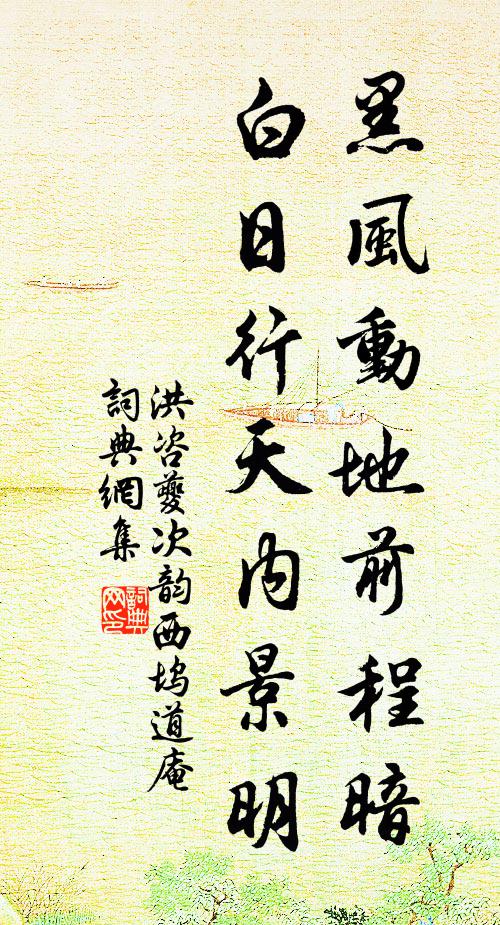 黑風動地前程暗
白日行天內景明
洪咨夔次韵西坞道庵
詞典網集
詞典
网印